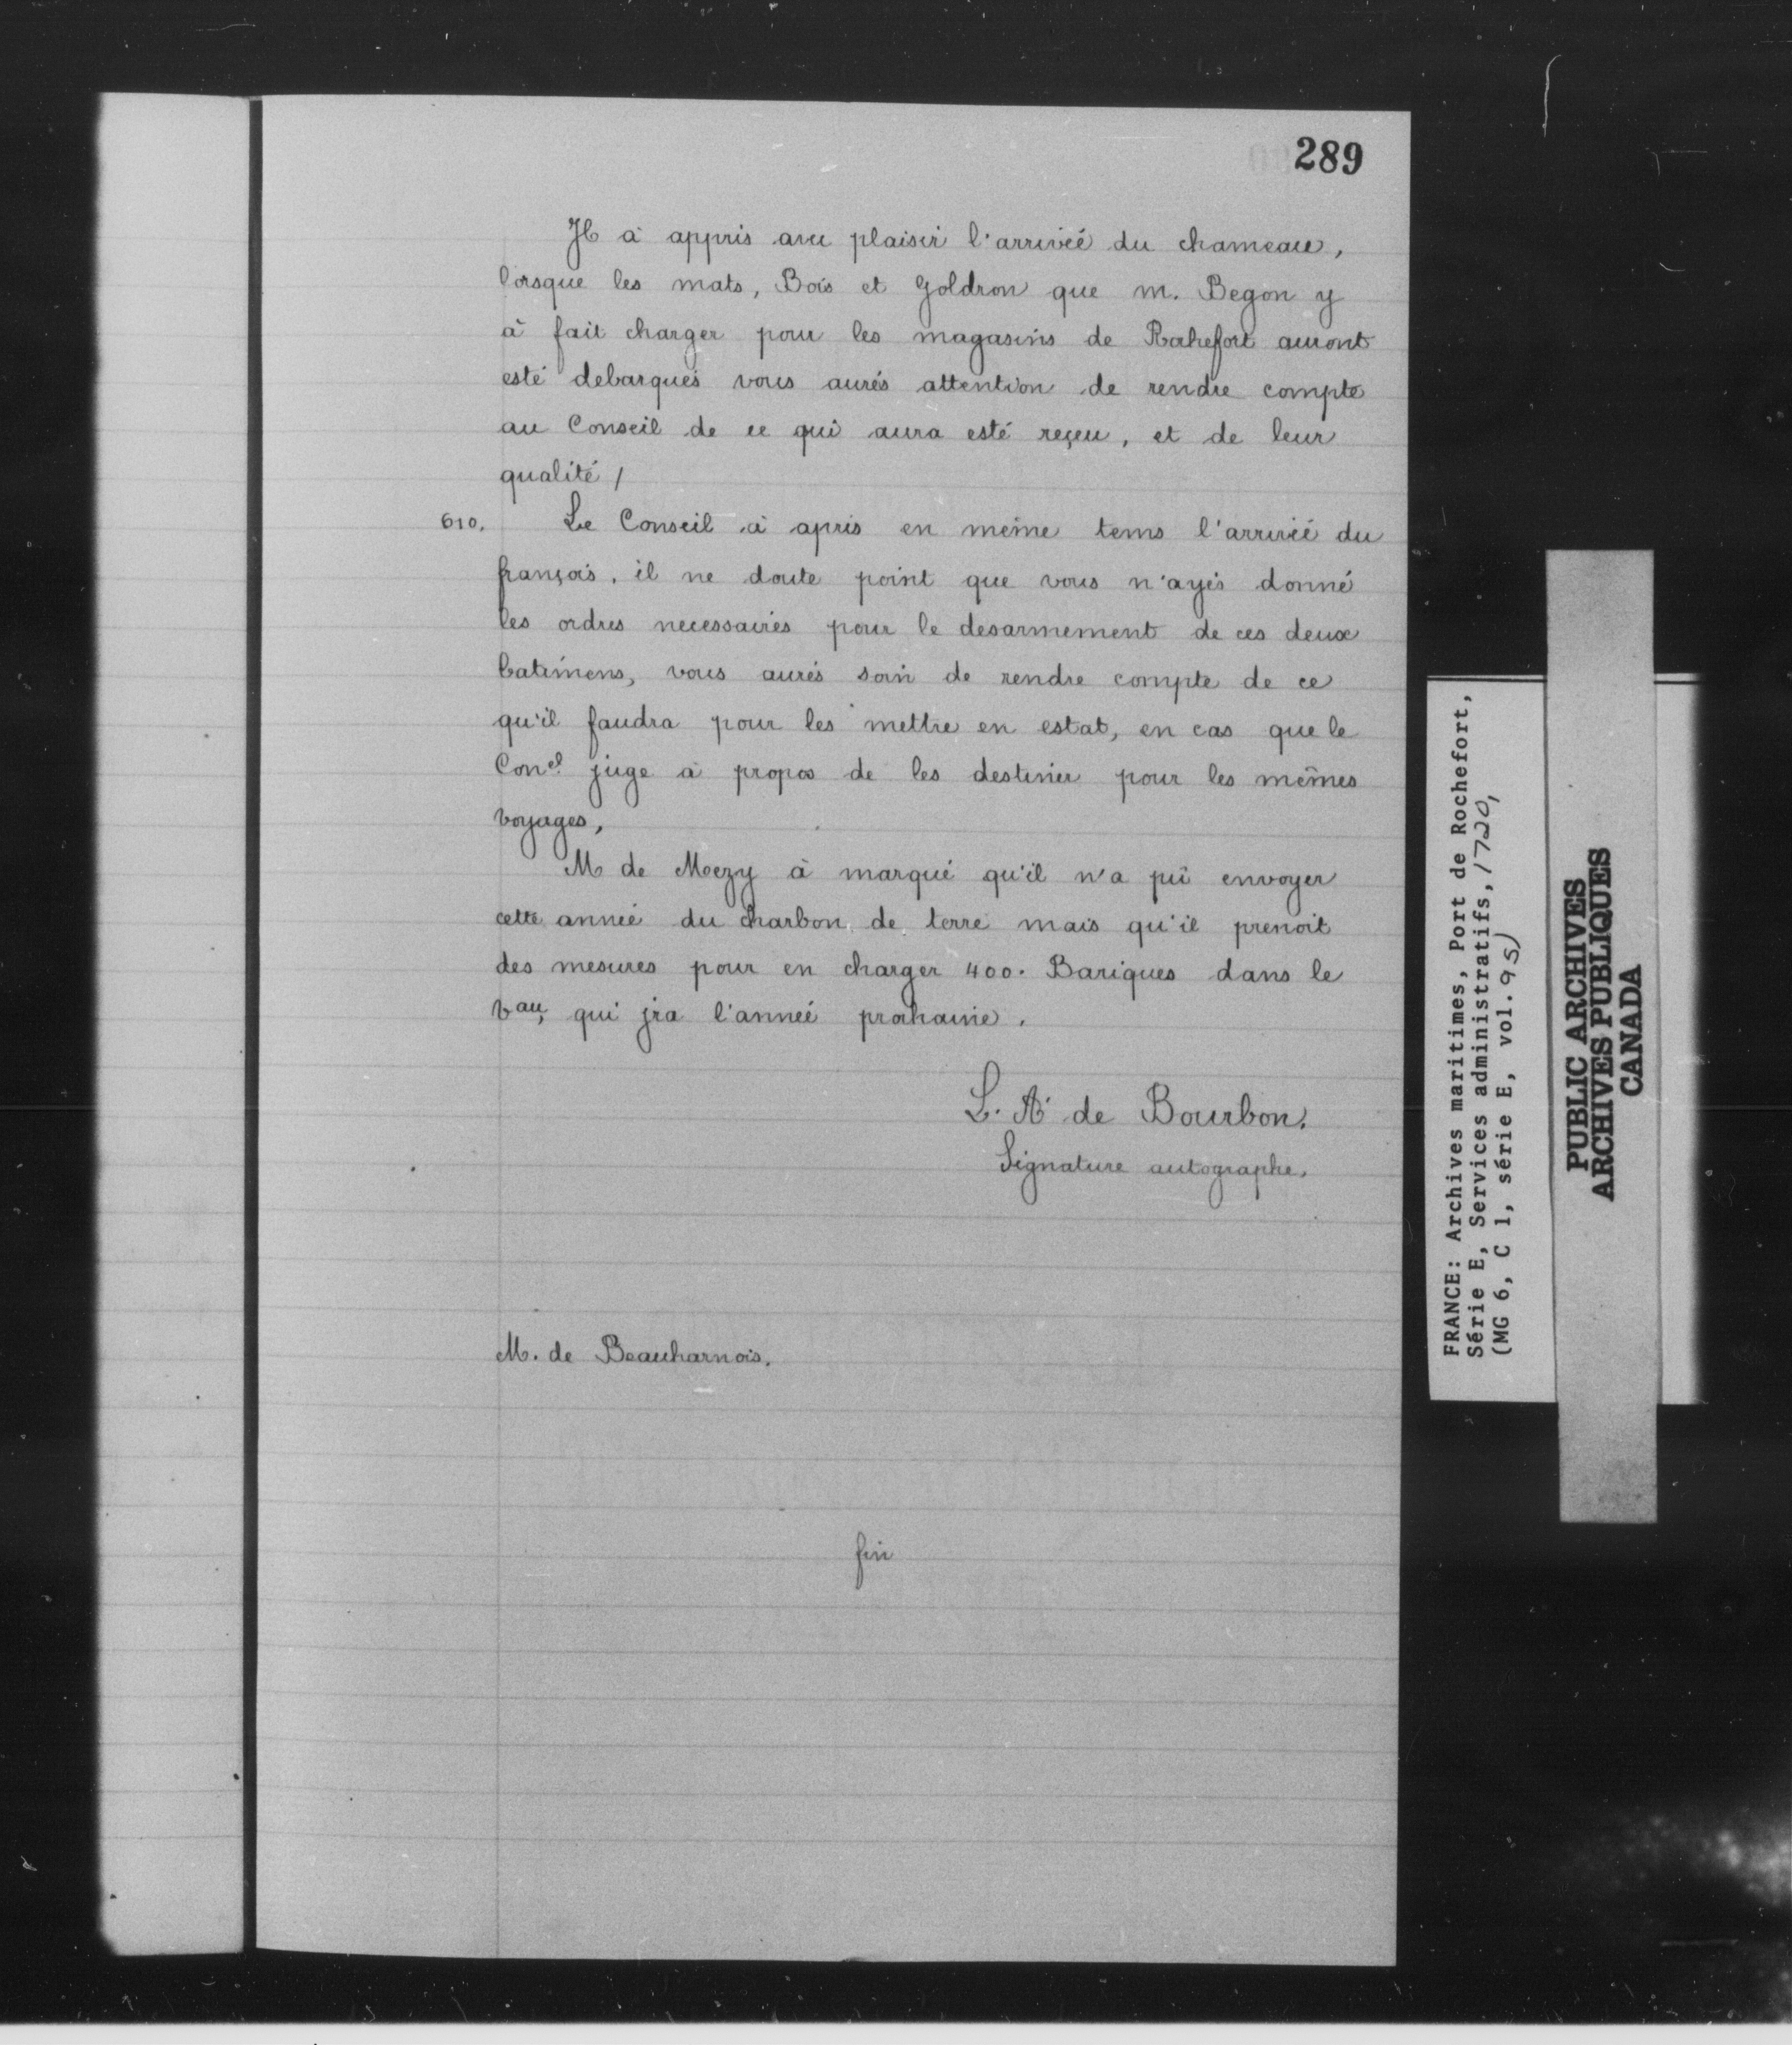 289
Il à appris avec plaisir l'arriveé du chameau,
lorsque les mats, Bois et Goldron que m. Begon y
à fait charger pour les magasins de Rochefort auront
esté debarqués vous aurés attention de rendre compte
au Conseil de ce qui aura esté reçeu, et de leur
qualité /
610. Le Conseil à apris en meine tems l'arriveé du
françois, il ne doute point que vous n'ayés donné
les ordres necessaires pour le desarmement de ces deux
batimens, vous aurés soin de rendre compte de ce
qu'il faudra pour les mettre en estat, en cas que le
Con.el juge à propos de les destiner pour les mêmes
voyages,
M de Mezy à marqué qu'il n'a pû envoyer
cette anneé du charbon de terre mais qu'il prenoit
des mesures pour en charger 400. Bariques dans le
vau, qui jra l'anneé prochaine.
L. A. de Bourbon.
Signature autographe.
M. de Beauharnois.
fin
FRANCE: Archives maritimes, Port de Rochefort,
Série E, Services administratifs, 1720,
(MG 6, C 1, série E, vol. 95)
PUBLIC ARCHIVES
ARCHIVES PUBLIQUES
CANADA